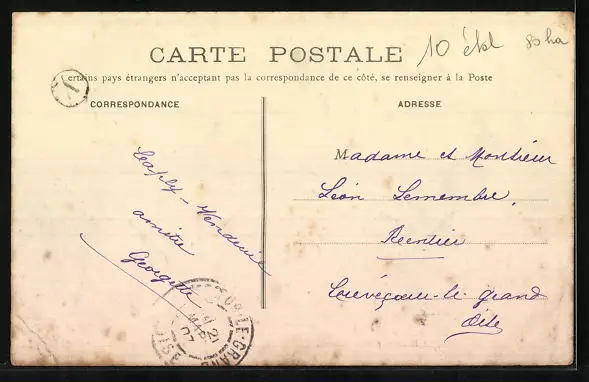 CARTE POSTALE
10 étbl
80 ha
Certains pays étrangers n'acceptant pas la correspondance de ce côté, se renseigner à la Poste
1
CORRESPONDANCE
ADRESSE
Madame et Monsieur
Léon Lemembre,
Rentier
Crèvecœur-le-grand
Oise
amitié
Georgette
CŒUR-LE-GRAND
21
MARS
07
OISE